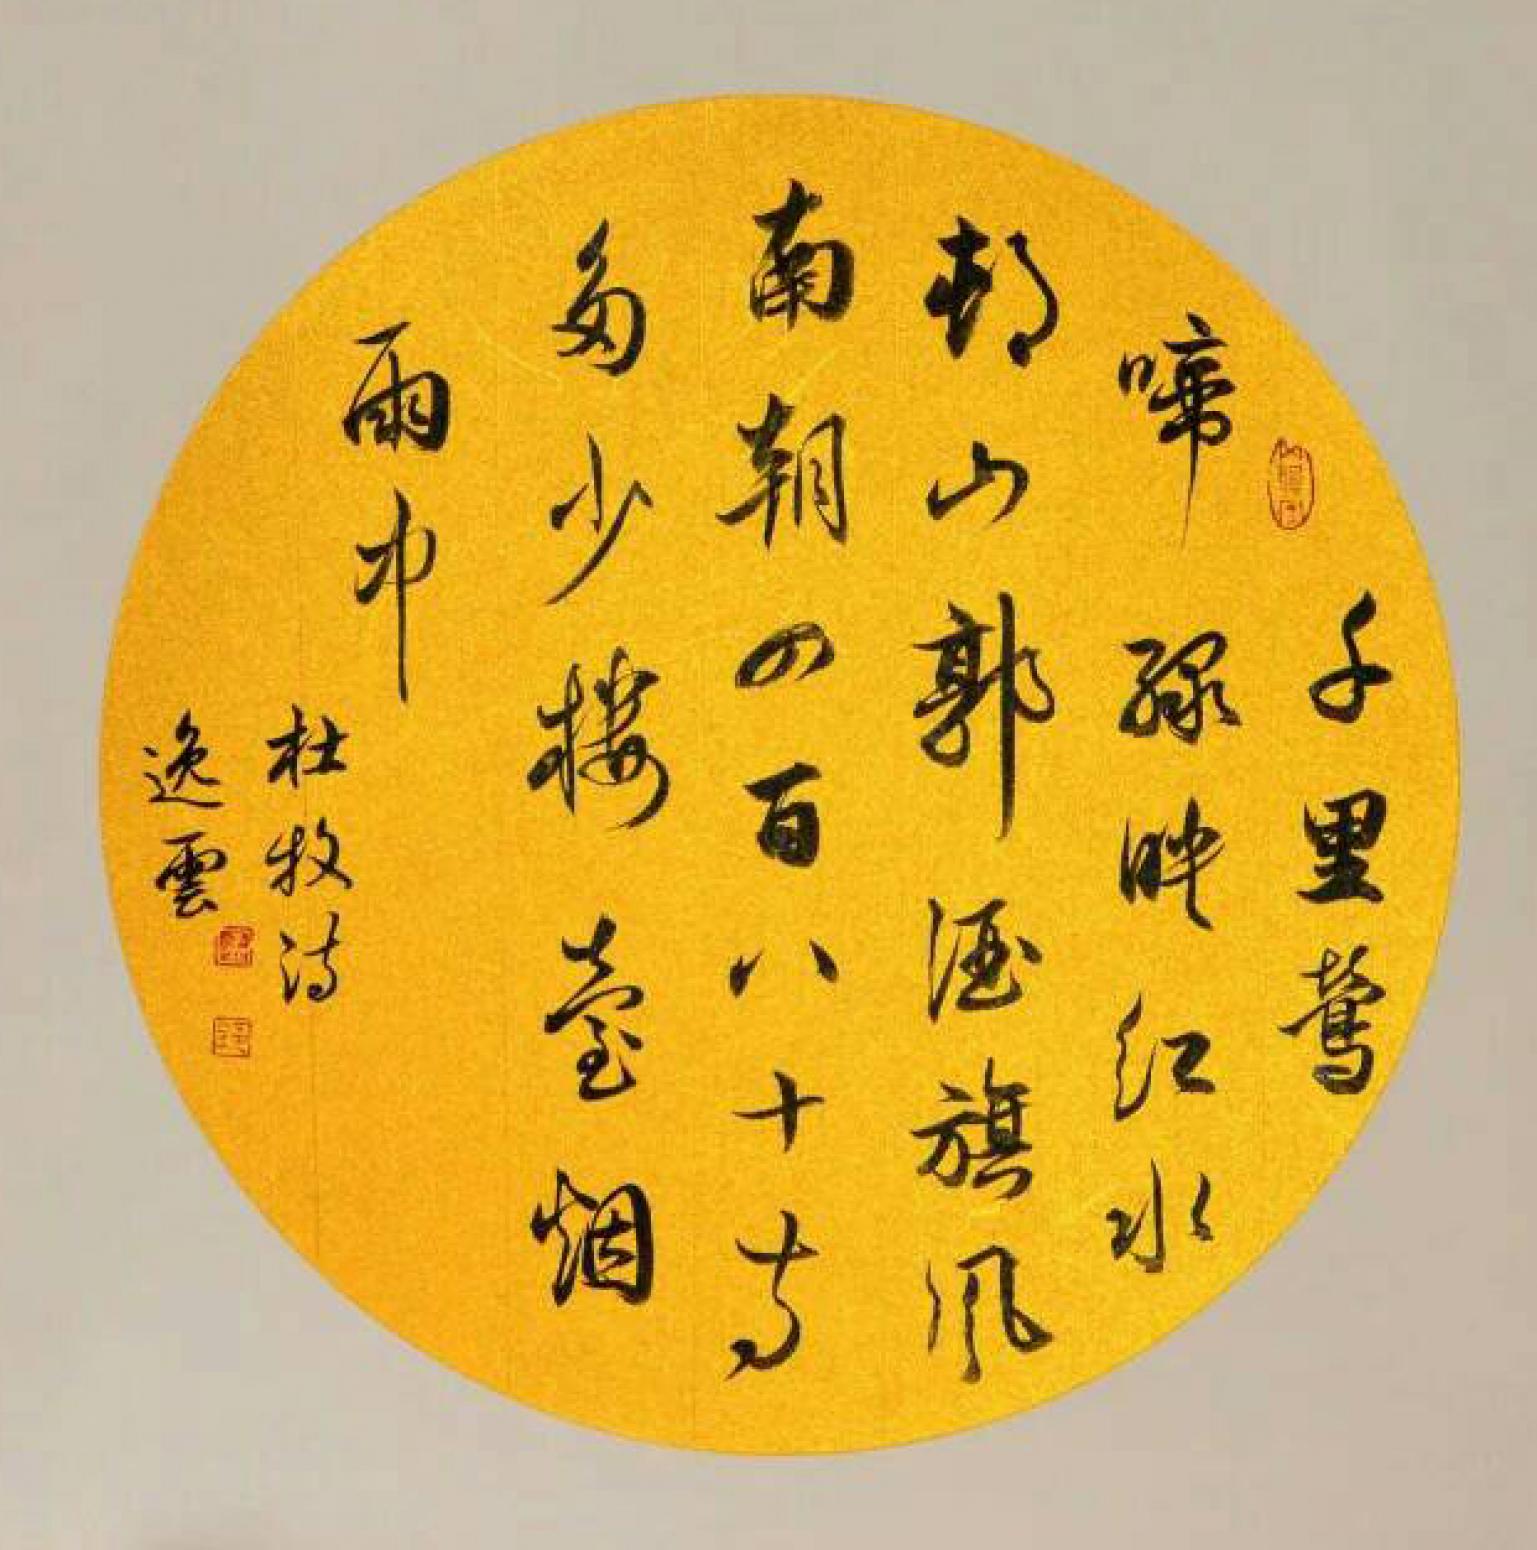 千里鶯
啼綠映紅水
邨山郭酒旗風
南朝四百八十寺
多少樓臺烟
雨中
杜牧詩
逸雲